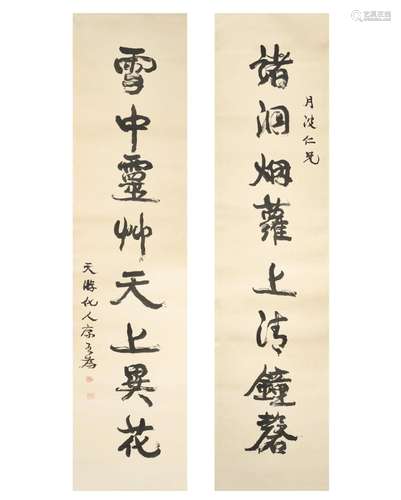 月波仁兄
諸洞烟蘿上清鐘磬
雪中靈艸天上異花
天游化人康有為